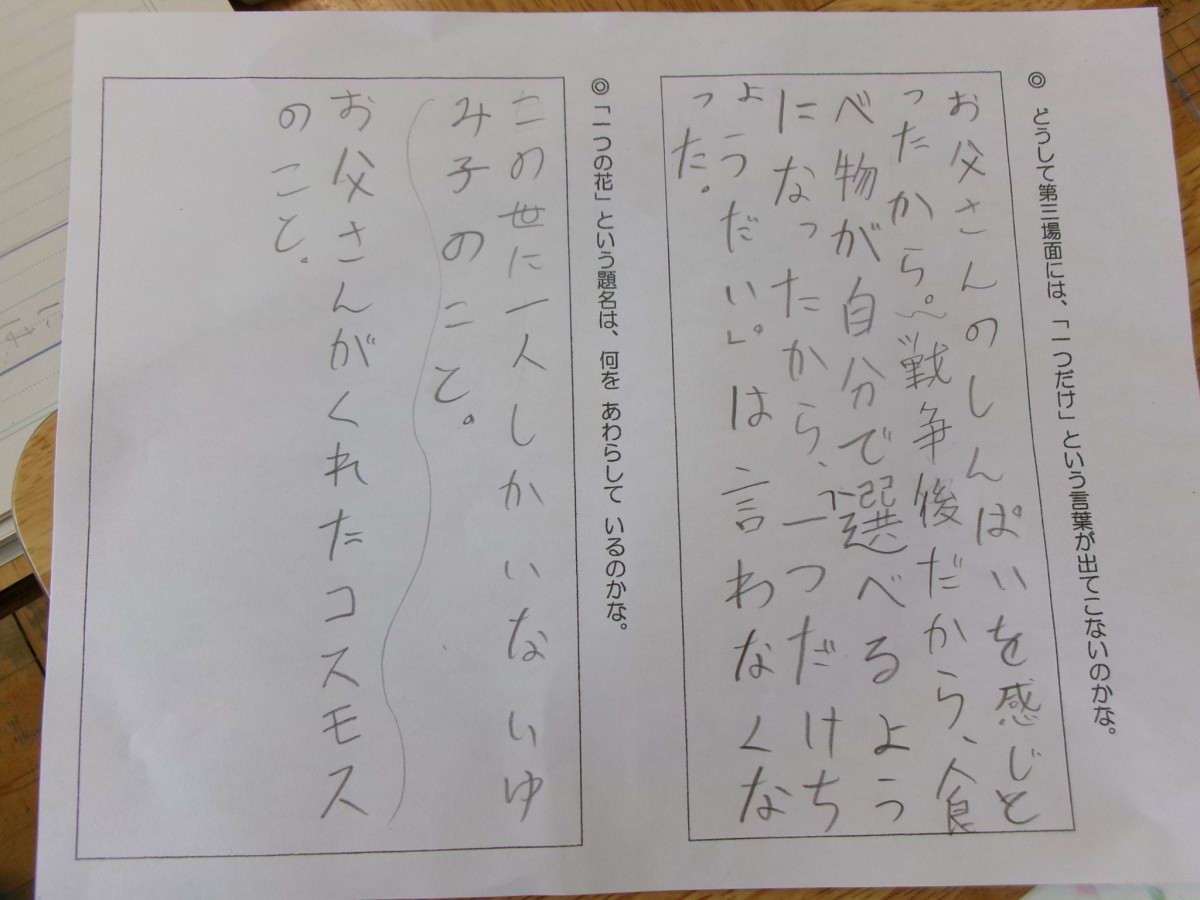 ◎ どうして第三場面には、「一つだけ」という言葉が出てこないのかな。
お父さんのしんぱいを感じと
ったから。戦争後だから、食
べ物が自分で選べるよう
になったから、一つだけち
ょうだい」。は言わなくな
った。
◎「一つの花」という題名は、何を あわらして いるのかな。
この世に一人しかいないゆ
み子のこと。
お父さんがくれたコスモス
のこと。